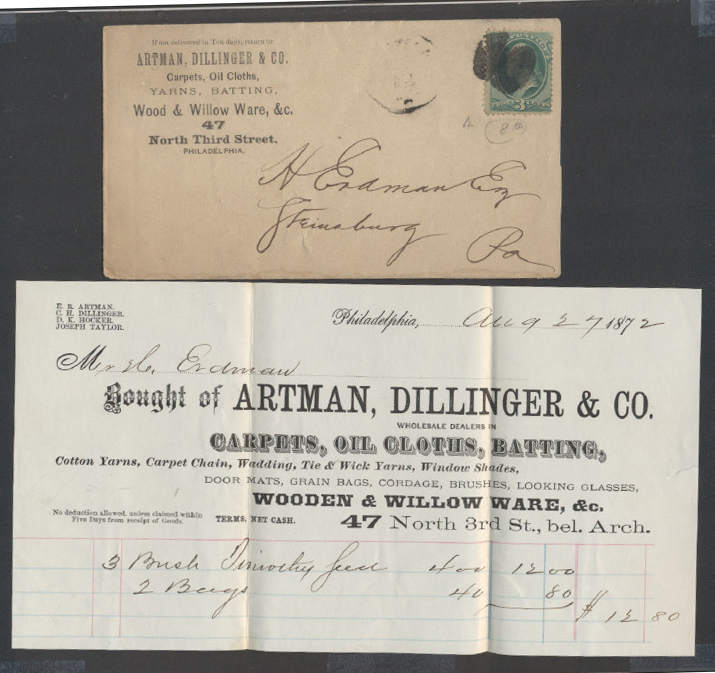 If not delivered in Ten days, return to
ARTMAN, DILLINGER & CO.
Carpets, Oil Cloths,
YARNS, BATTING,
Wood & Willow Ware, &c.
47
North Third Street,
PHILADELPHIA.
H Erdman Esq
Steinsburg
Pa
E. R. ARTMAN.
C. H. DILLINGER.
D. K. HOCKER.
JOSEPH TAYLOR.
Philadelphia, Aug 27 1872
Mr H. Erdman
Bought of ARTMAN, DILLINGER & CO.
WHOLESALE DEALERS IN
CARPETS, OIL CLOTHS, BATTING,
Cotton Yarns, Carpet Chain, Wadding, Tie & Wick Yarns, Window Shades,
DOOR MATS, GRAIN BAGS, CORDAGE, BRUSHES, LOOKING GLASSES,
WOODEN & WILLOW WARE, &c.
No deduction allowed, unless claimed within
Five Days from receipt of Goods.
TERMS, NET CASH.
47 North 3rd St., bel. Arch.
3 Bush Timothy Seed 400 1200
2 Bags 40 80
$ 12 80